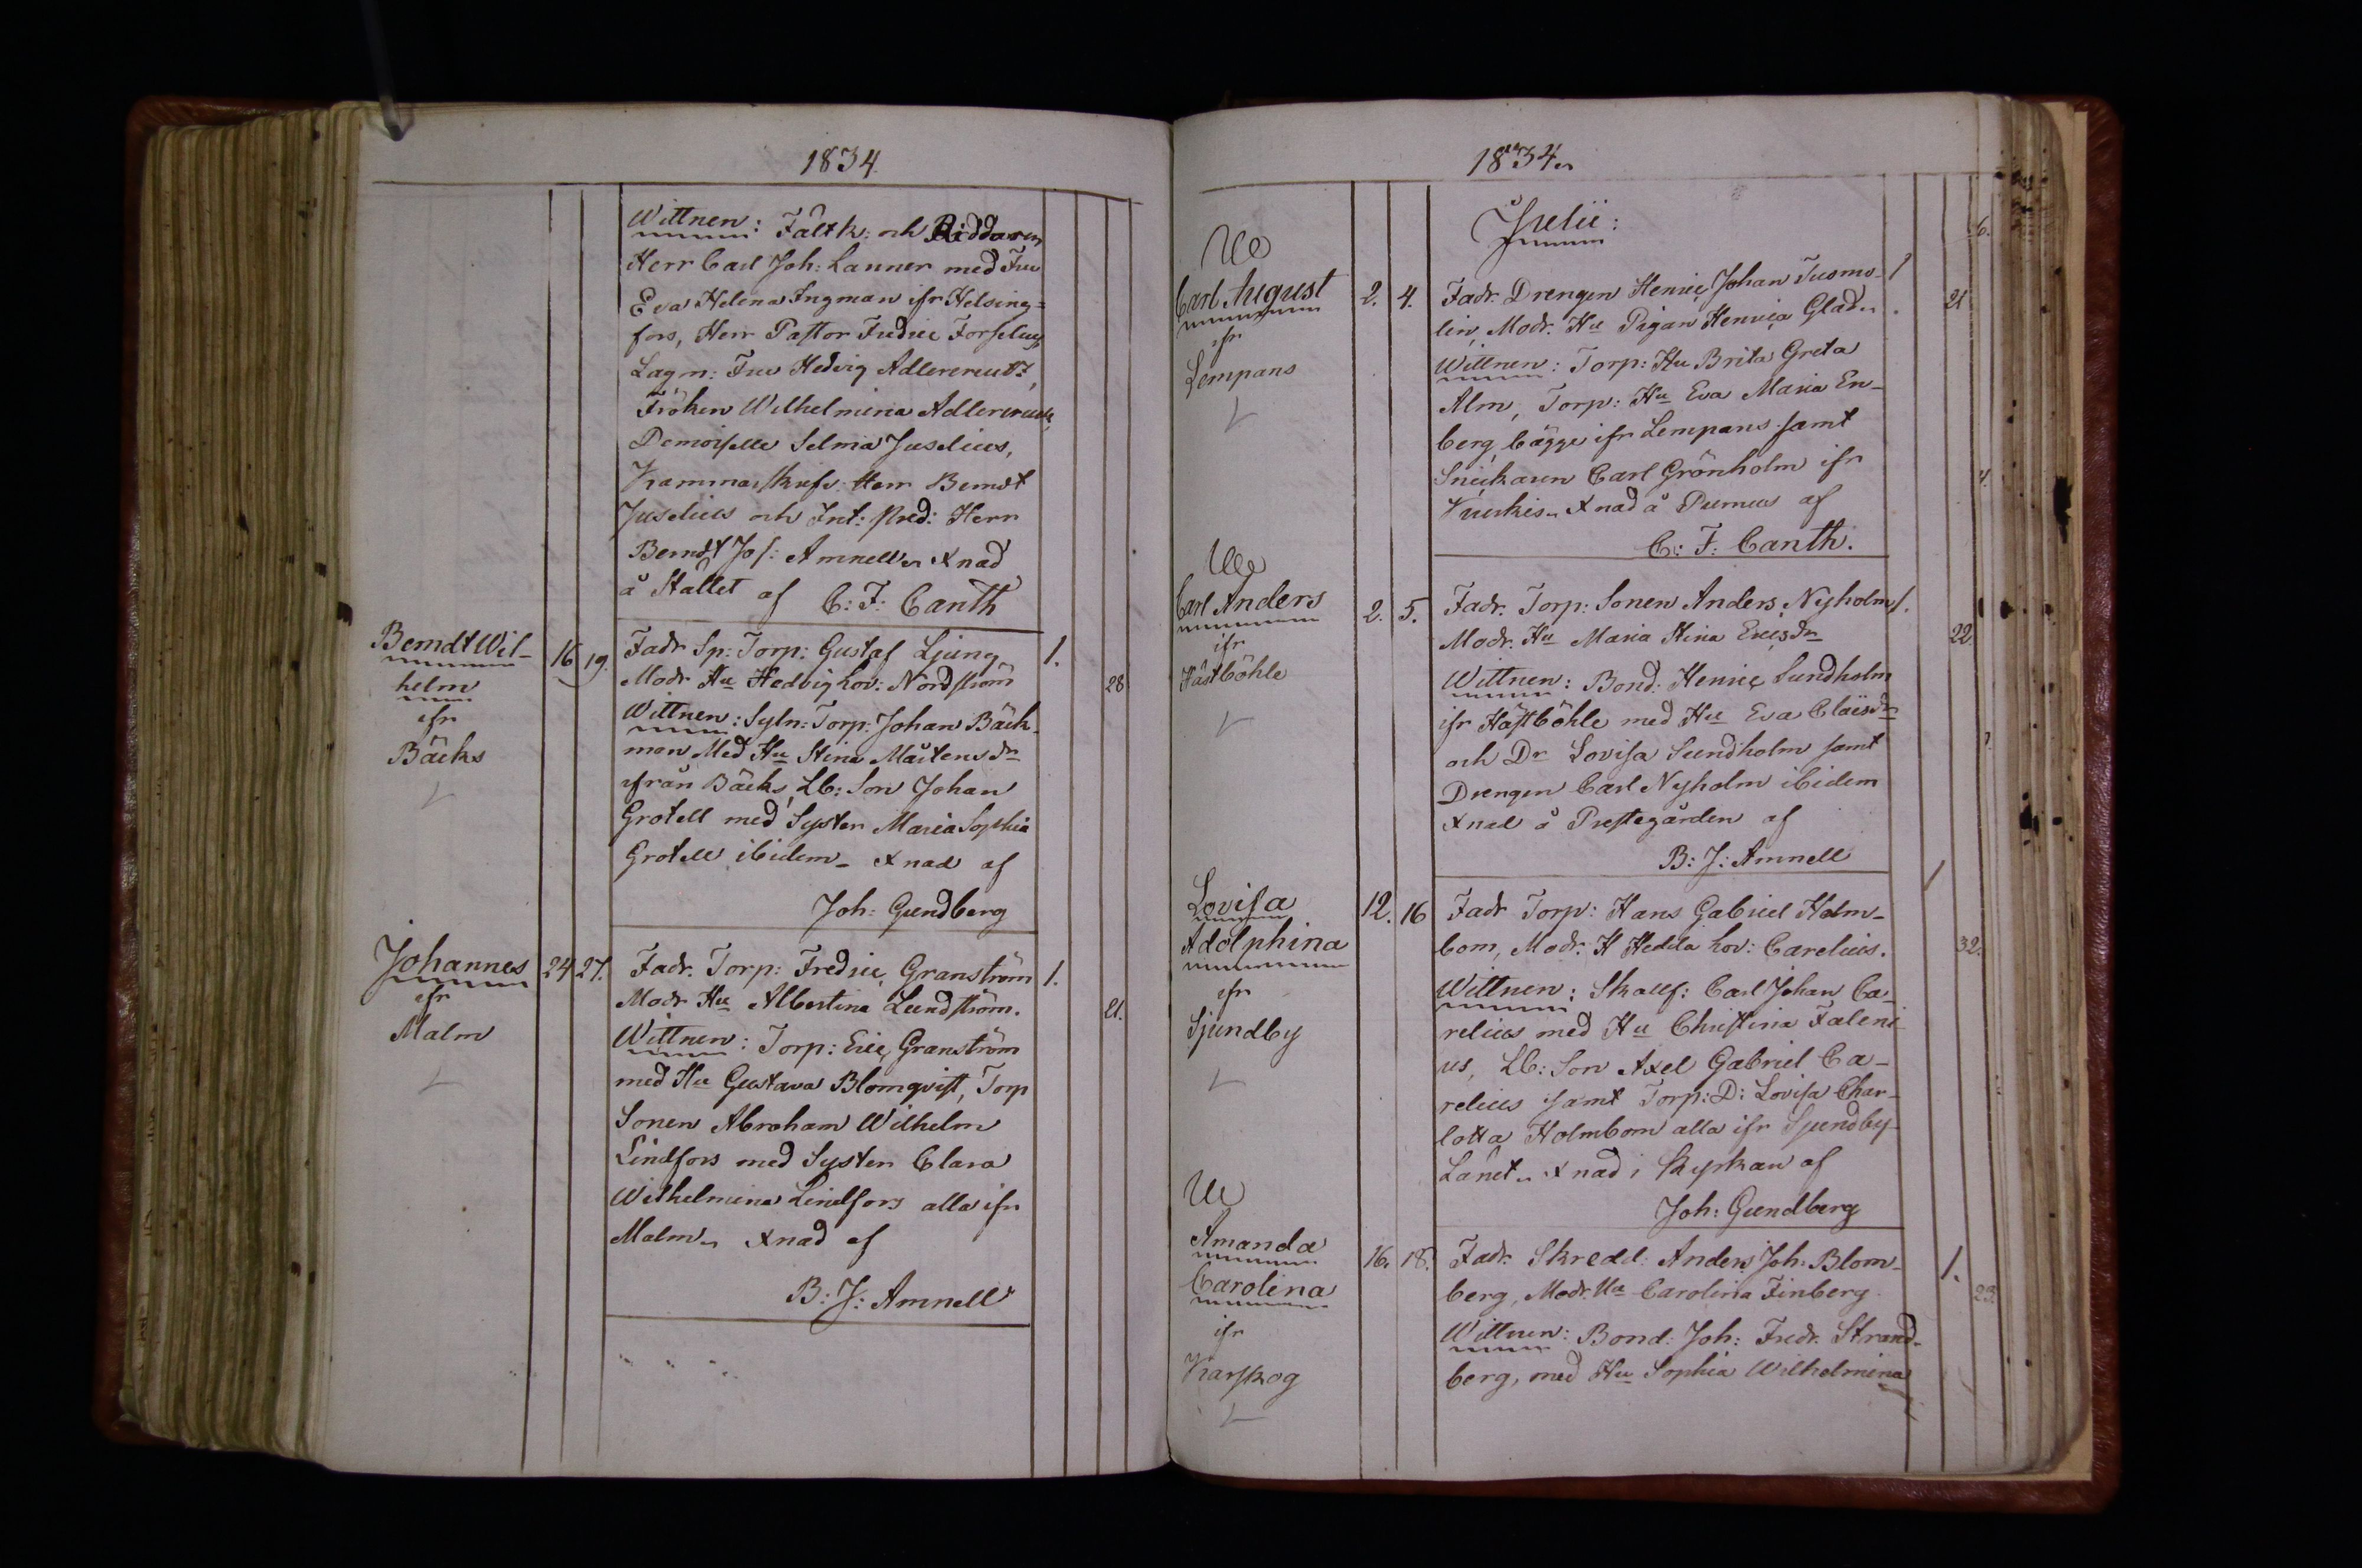 1834
Wittnen: Fältk: och Riddaren
Herr Carl Joh: Lanner med Fru
Eva Helena Ingman ifr Helsing=
fors, Herr Pastor Fredric Forselius
Lagm: Fru Hedvig Adlercreutz,
Fröken Wilhelmina Adlercreutz,
Demoiselle Selma Juselius,
Kammarskrifv: Herr Berndt
Juselius och Int: pred: Herr
Berndt Jos: Amnell. Xnad
å Stället af C: F: Canth
Berndt Wil-
helm
ifr
Bäcks
16 19. Fadr Sp: Torp: Gustaf Ljung 1.
Modr Hu Hedvig Lov: Nordström 28
Wittnen: Sytn: Torp: Johan Bäck-
man Med Hu Stina Mårtensdr
ifrån Bäcks, Lb: Son Johan
Grotell med Syster Maria Sophia
Grotell ibidem - Xnad af
Joh: Gundberg
Johannes
ifr
Malm
24 27. Fadr. Torp: Fredric Granström 1.
Modr Hu Albertina Lundström. 21.
Wittnen: Torp: Eric Granström
med Hu Gustava Blomqvist, Torp
Sonen Abraham Wilhelm
Lindfors med Syster Clara
Wilhelmina Lindfors alla ifr
Malm. Xnad af
B: J: Amnell
1834.
Julii: 6.
Ue
Carl August
ifr
Lempans
2. 4. Fadr. Drengen Henric Johan Tuomo- 1
lin, Modr. Hu Pigan Henrica Glad. 21
Wittnen: Torp: Hu Brita Greta
Alm, Torp: Hu Eva Maria En-
berg, bägge ifr Lempans samt
Snickaren Carl Grönholm ifr
Xnad å Purnus af
C: F: Canth.
Ue
Carl Anders
ifr
Hästböhle
2. 5. Fadr. Torp: Sonen Anders Nyholm 1.
Modr. Hu Maria Stina Ericsdr 22.
Wittnen: Bond: Henric Sundholm
ifr Hästböhle med Hu Eva Claisdr
och Dr Lovisa Sundholm samt
Drengen Carl Nyholm ibidem
Xnad å Prestegården af
B: J: Amnell
Lovisa
Adolphina
ifr
Sjundby
12. 16 Fadr Torp: Hans Gabriel Holm- 1
bom, Modr. H Hedda Lov: Carelius. 32.
Wittnen: Skallf: Carl Johan Ca-
relius med Hu Christina Faleni-
us, Lb: Son Axel Gabriel Ca-
relius samt Torp: D: Lovisa Char-
lotta Holmbom alla ifr Sjundby
Länet. Xnad i Kyrkan af
Joh: Gundberg
Ue
Amanda
Carolina
ifr
Karskog
16. 18. Fadr. Skredd: Anders Joh: Blom- 1.
berg, Modr. Hu Carolina Finberg. 23.
Wittnen: Bond: Joh: Fredr. Strand-
berg, med Hu Sophia Wilhelmina